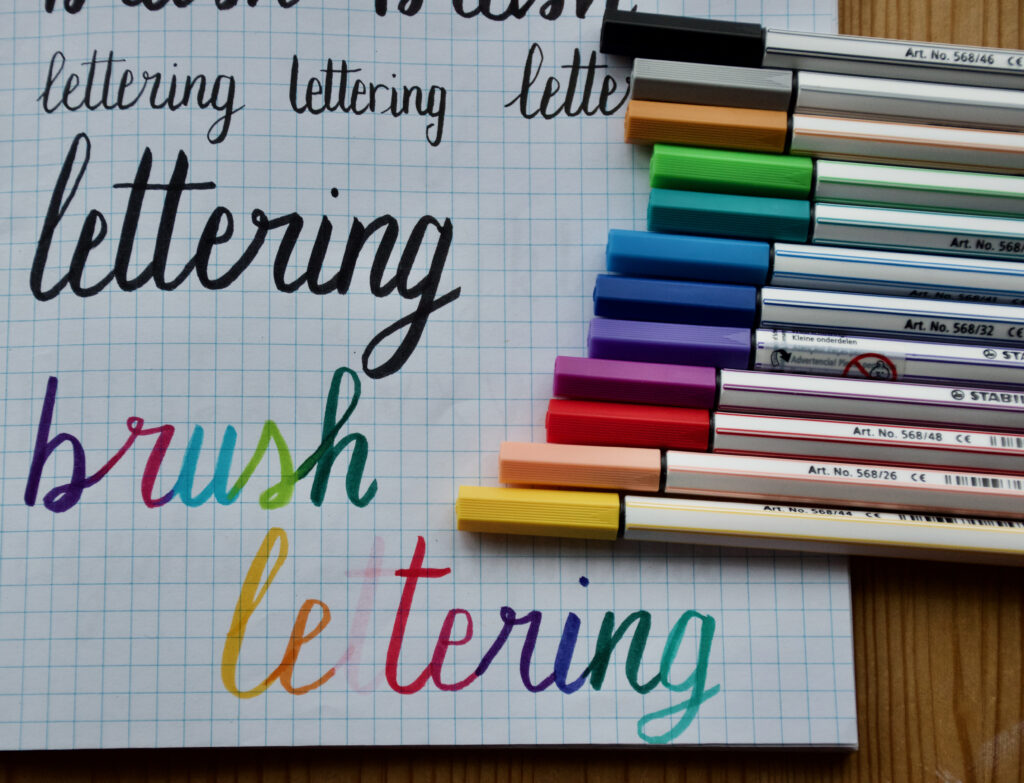 brush brush
lettering lettering lette
lettering
brush
lettering
Art. No. 568/46 CE
Art. No. 568
Art. No. 568/41 CE
Art. No. 568/32 CE
Kleine onderdelen
STA
STABIL
Art. No. 568/48 CE
Art. No. 568/26 CE
Art. No. 568/44 CE